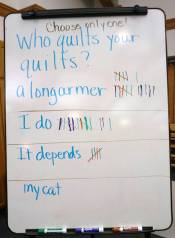 Choose only one!
Who quilts your
quilts?
a longarmer
I do
It depends
my cat